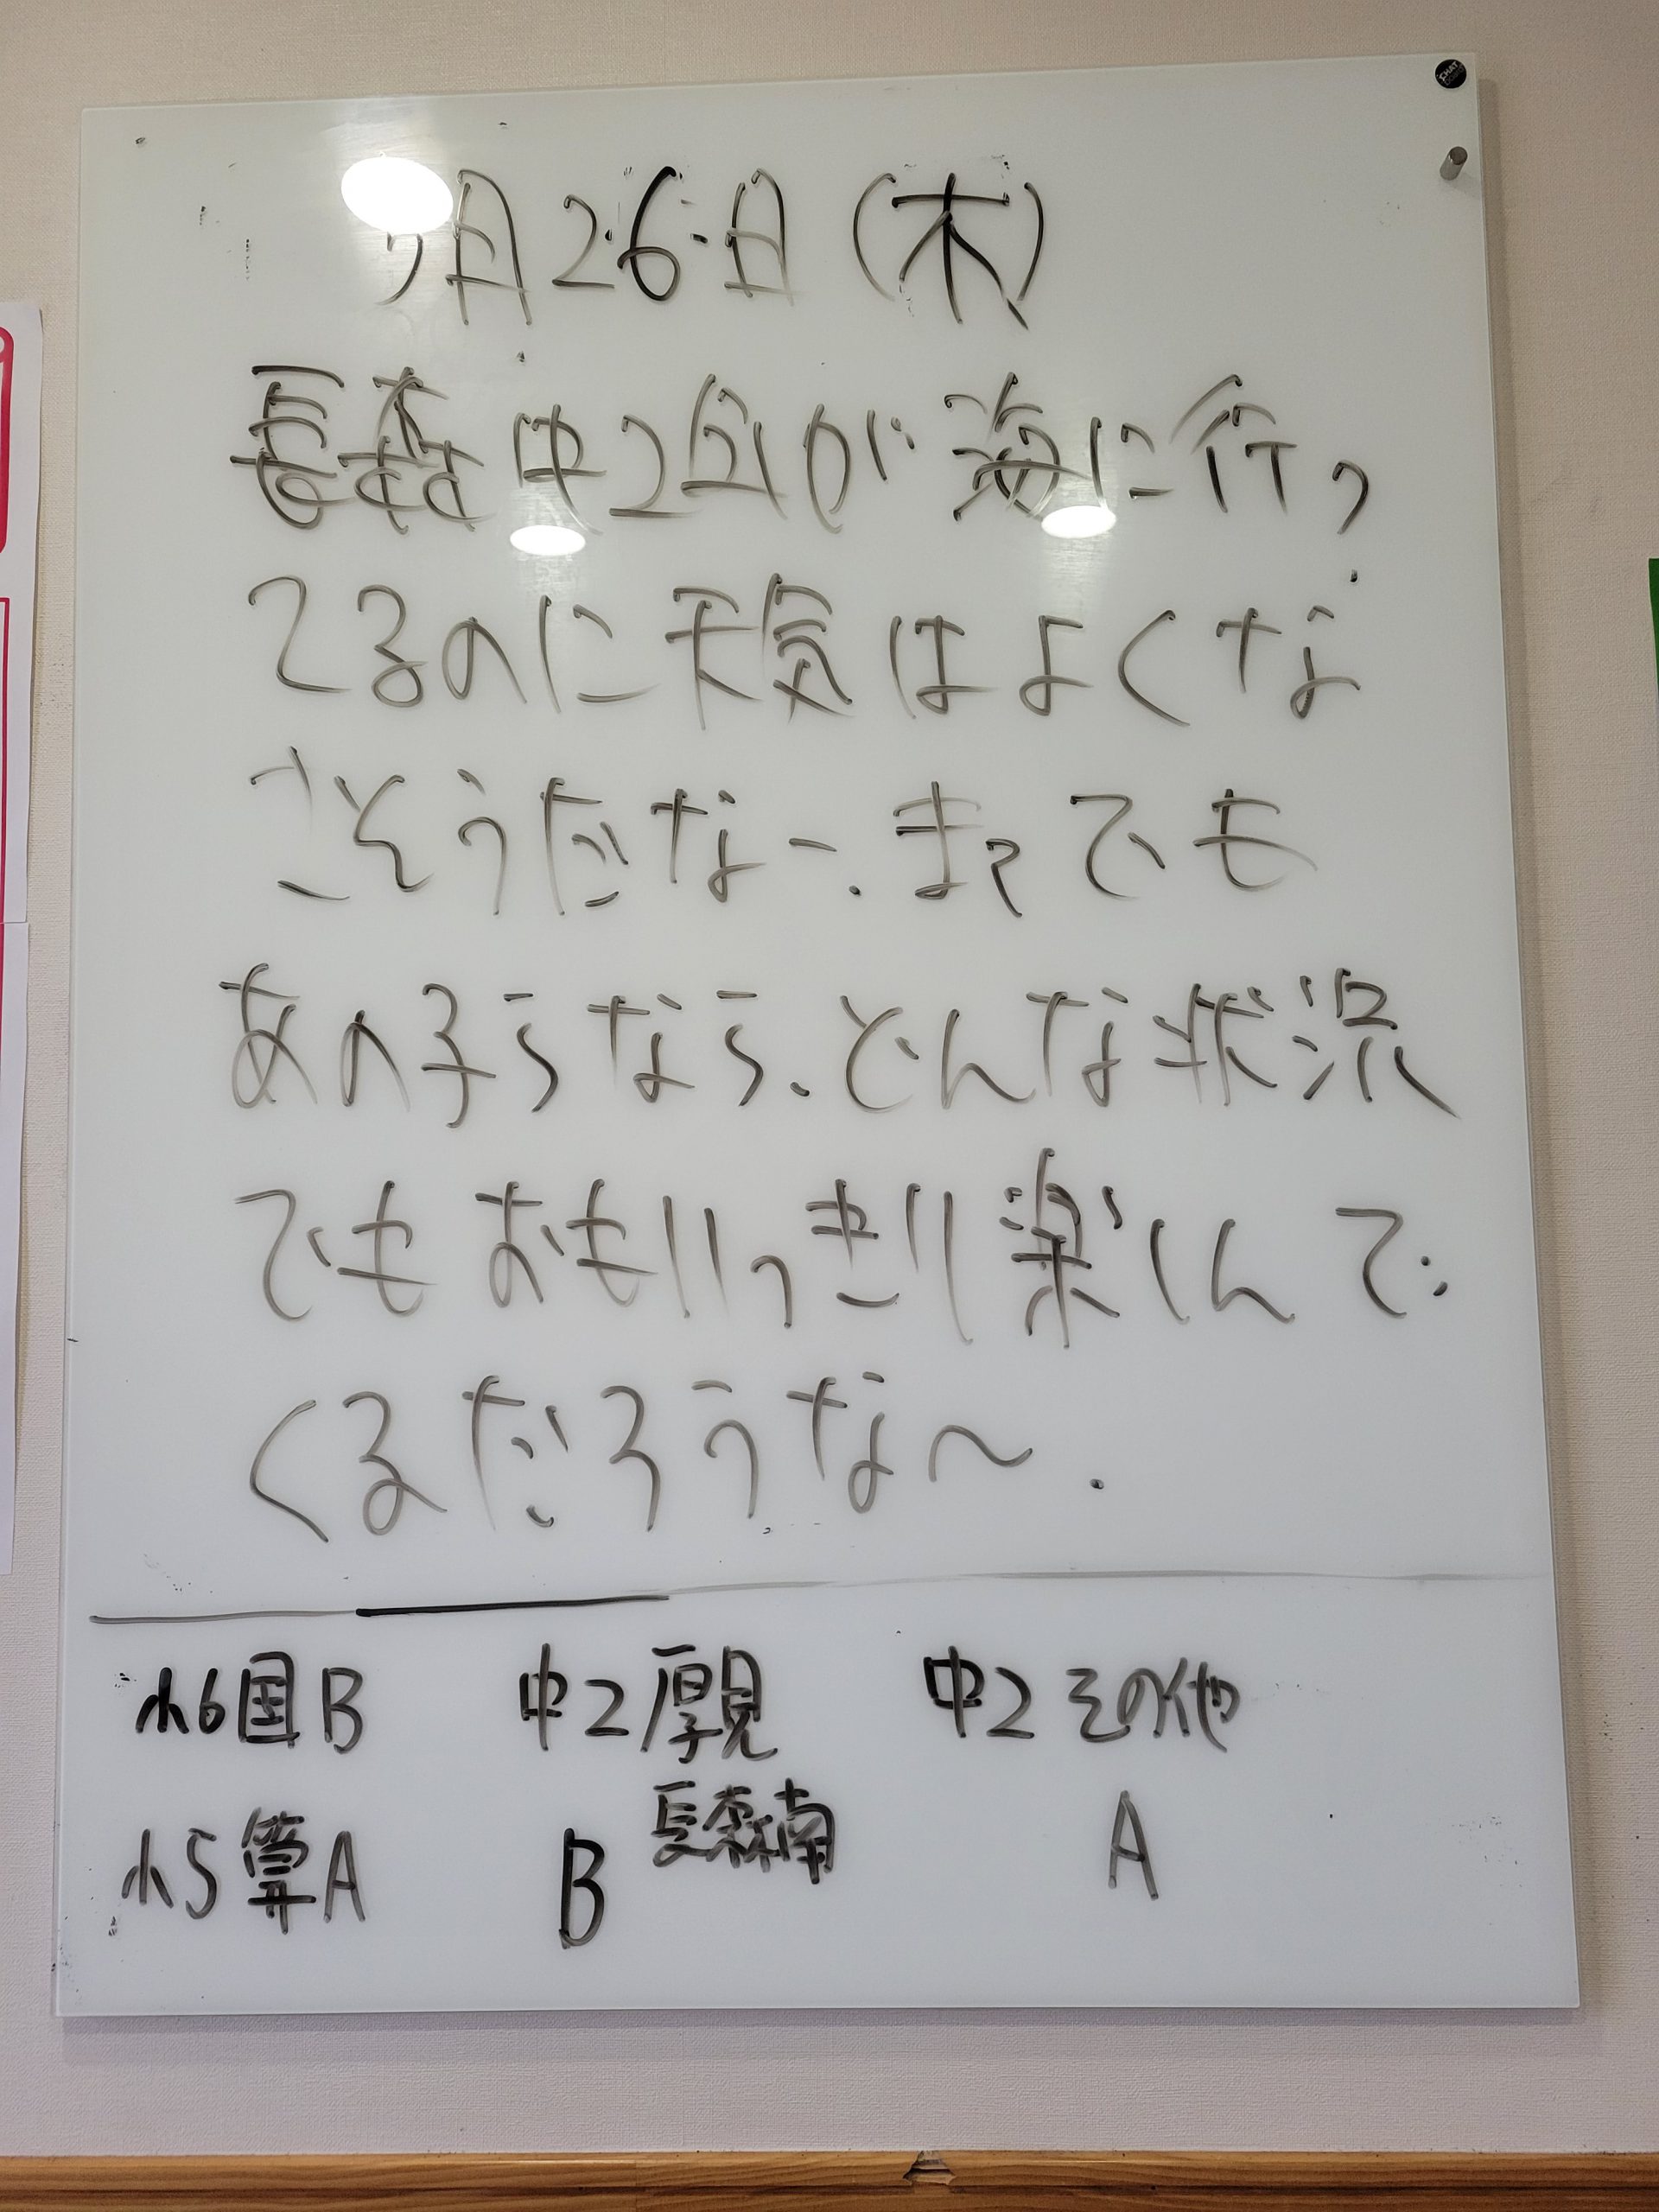 月26日(木)
長森中2年が海に行っ
てるのに天気はよくな
さそうだなー.まぁでも
あの子らなら、どんな状況
でもおもいっきり楽しんで
くるだろうな〜.
小6国B 中2厚見 中2その他
長森南
小5算A B A